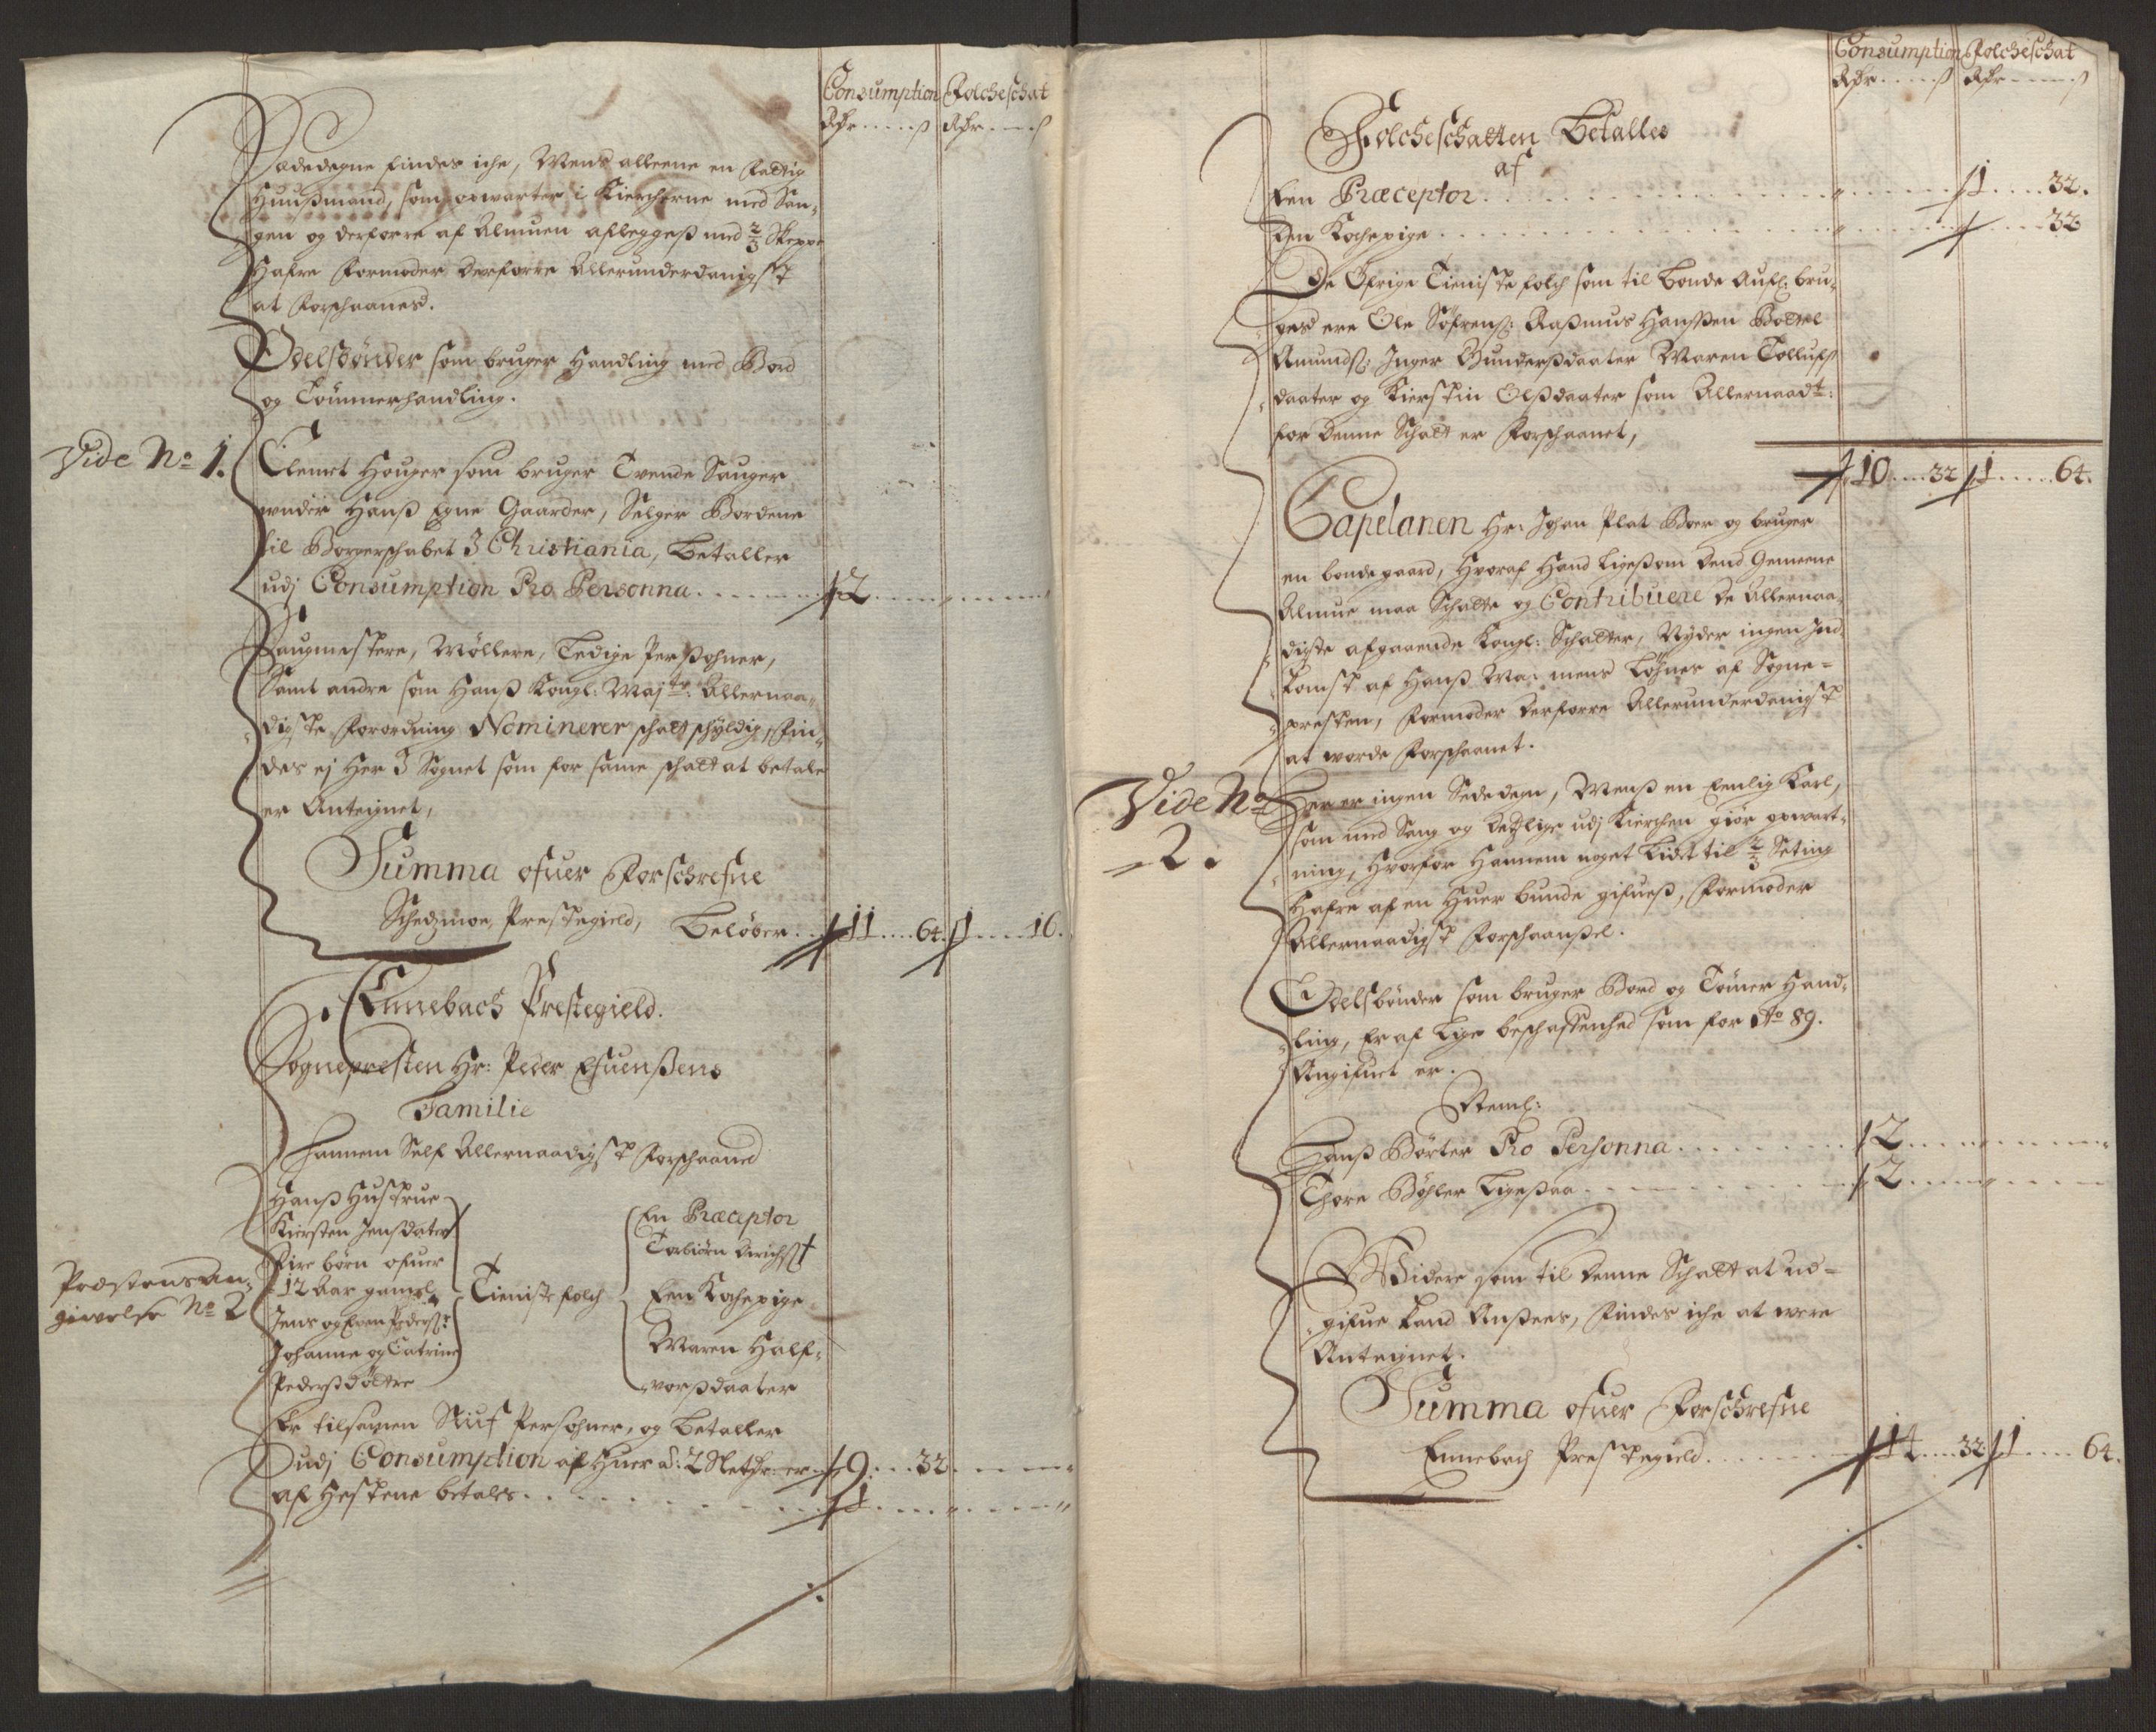 Consumption Folcheschat
Rdr ß Rdr ß
Sædedegne findes iche, Mens alleene en fattig
Huusmand, som opwarter i Kiercherne med San-
gen og derforre af Almuen aflegges med 2/3 Skeppe
Hafre formoder derforre Allerunderdanigst
at forschaanes.
Odelsbønder som bruger Handling med Bord
og Tømmerhandling.
Vide No 1.
Clemet Houger som bruger Tvende Sauger
under Hanß Egne Gaarder, Selger Bordene
til Borgerschabet J Christiania, Betaller
udj Consumption Pro Personna 2
Saugmestere, Møllere, Ledige Persohner,
Samt andre som Hanß Kongl: Maj:ts Allernaa-
digste forordning Nominerer schatt schyldig, fin-
des ej Her J Sognet som for same schatt at betale
er Antegnet,
Summa ofuer Forschrefne
Schedzmoe Prestegield, Beløber 11 64. 1 16.
Ennebach Prestegield.
Sognepresten Hr: Peder Efuensens
Familie
Hannem Self Allernaadigst forschaaned
Hanß Hustrue
Kiersten Jensdater
Fire børn ofuer
12 Aar gamel
Jens og Even Pedersß:
Johanne og Catrine
Pedersdøttre
Tieniste folch
En Præceptor
Torbiørn
Een Kochepige
Maren Half-
vorsdaater
Prestens An-
givelse No 2
Er tilsamen Niuf Persohner, og betaller
udj Consumption af Huer a: 2 Sletdr: er 9 32
af Hestene betales 1
Consumption Folcheschat
Rdr ß Rdr ß
Folcheschatten Betalles
af
Een Præceptor 1 32.
Een Kochepige 32
De Øfrige Tieniste folch som til bonde Aufl: bru-
ges ere Ole Søfrens: Rasmus Hanssen Bottel
Amunds: Inger Gundersdaater Maren Tollufs
daater og Kierstin Olsdaater som Allernaadt:
for denne Schatt er forschaanet,
10 32 1 64.
Capelanen Hr: Johan Plat Boer og bruger
en bondegaard, Hvoraf Hand ligesom dend Gemeene
Almue maa Schatte og Contribuere de Allernaa-
digste afgaaende Kongl: Schatter, Nyder ingen Ind-
komst af Hanß Ma: mens Løhnes af Sogne-
presten, formoder derforre Allerunderdanigst
at worde forschaanet.
Vide No
2.
Her er ingen Sededegn, Mens en Eenlig Karl,
som med Sang og deslige udj Kierchen giør opwart-
ning, Hvorfor Hannem noget lidet til 2/3 Seting
Hafre af en Huer bunde gifues, formoder
Allernaadigst forschaansel.
Odelsbønder som bruger Bord og Tømer Hand-
ling, Er af lige beschaffenhed som for Ao 89.
Angifuet er.
Neml:
Hans Børter Pro Personna 2
Thore Bøhler Ligesaa 2
Widere som til denne Schatt at ud-
gifue kand Ansees, findes iche at were
Antegnet.
Summa ofuer Forschrefne
Ennebach Prestegield 14 32 1 64.